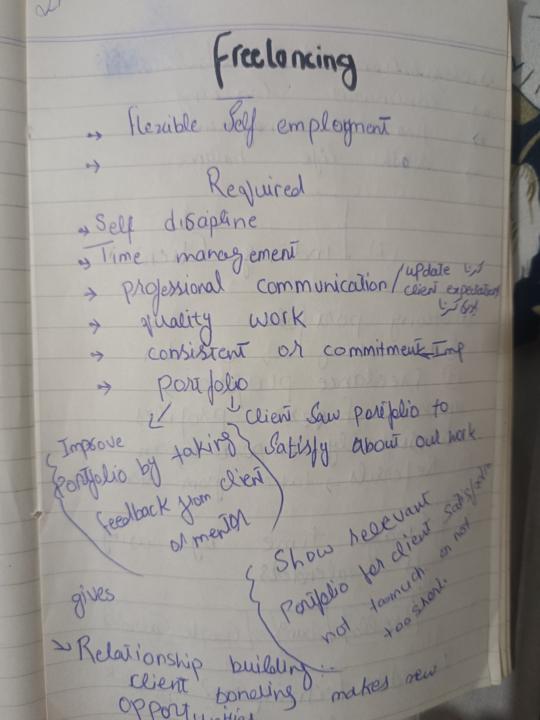 Freelancing
→ flexible Self employment
→
Required
→ Self disapline
→ Time management
→ professional communication / update کرنا
client expectations
→ quality work
→ consistent or commitment ← Imp
→ portfolio
client saw portfolio to
satisfy about out work
Improve
portfolio by taking
feedback from client
or mentor
Show relevant
portfolio for client satisfaction
not too much or not
too short.
gives
→ Relationship building..
client bonding makes new
opportunities